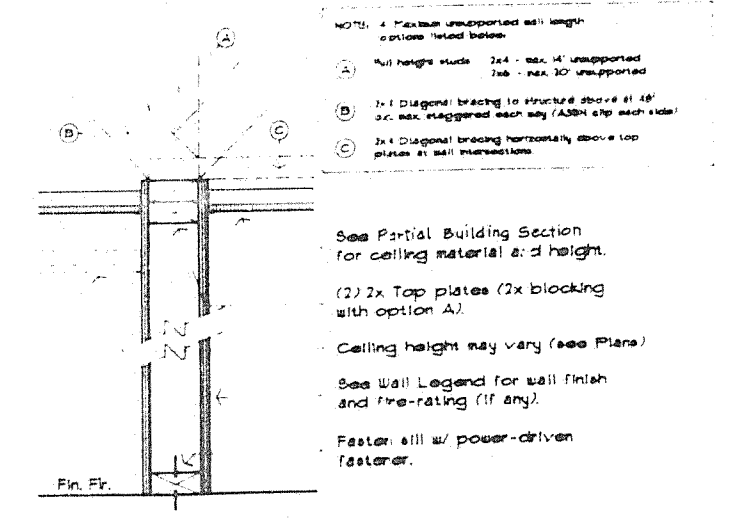 NOTE: 4 Maximum unsupported wall length
options listed below.
A
Full height studs 2x4 - max. 14' unsupported
2x6 - max. 20' unsupported
B
Diagonal bracing to structure above at 48"
o.c. max. staggered each way (A35N clip each side)
C
2x4 Diagonal bracing horizontally above top
plates at wall intersections.
A
B
C
See Partial Building Section
for ceiling material and height.
(2) 2x Top plates (2x blocking
with option A).
Ceiling height may vary (see Plans)
See Wall Legend for wall finish
and fire-rating (if any).
Fasten sill w/ power-driven
fastener.
Fin. Flr.